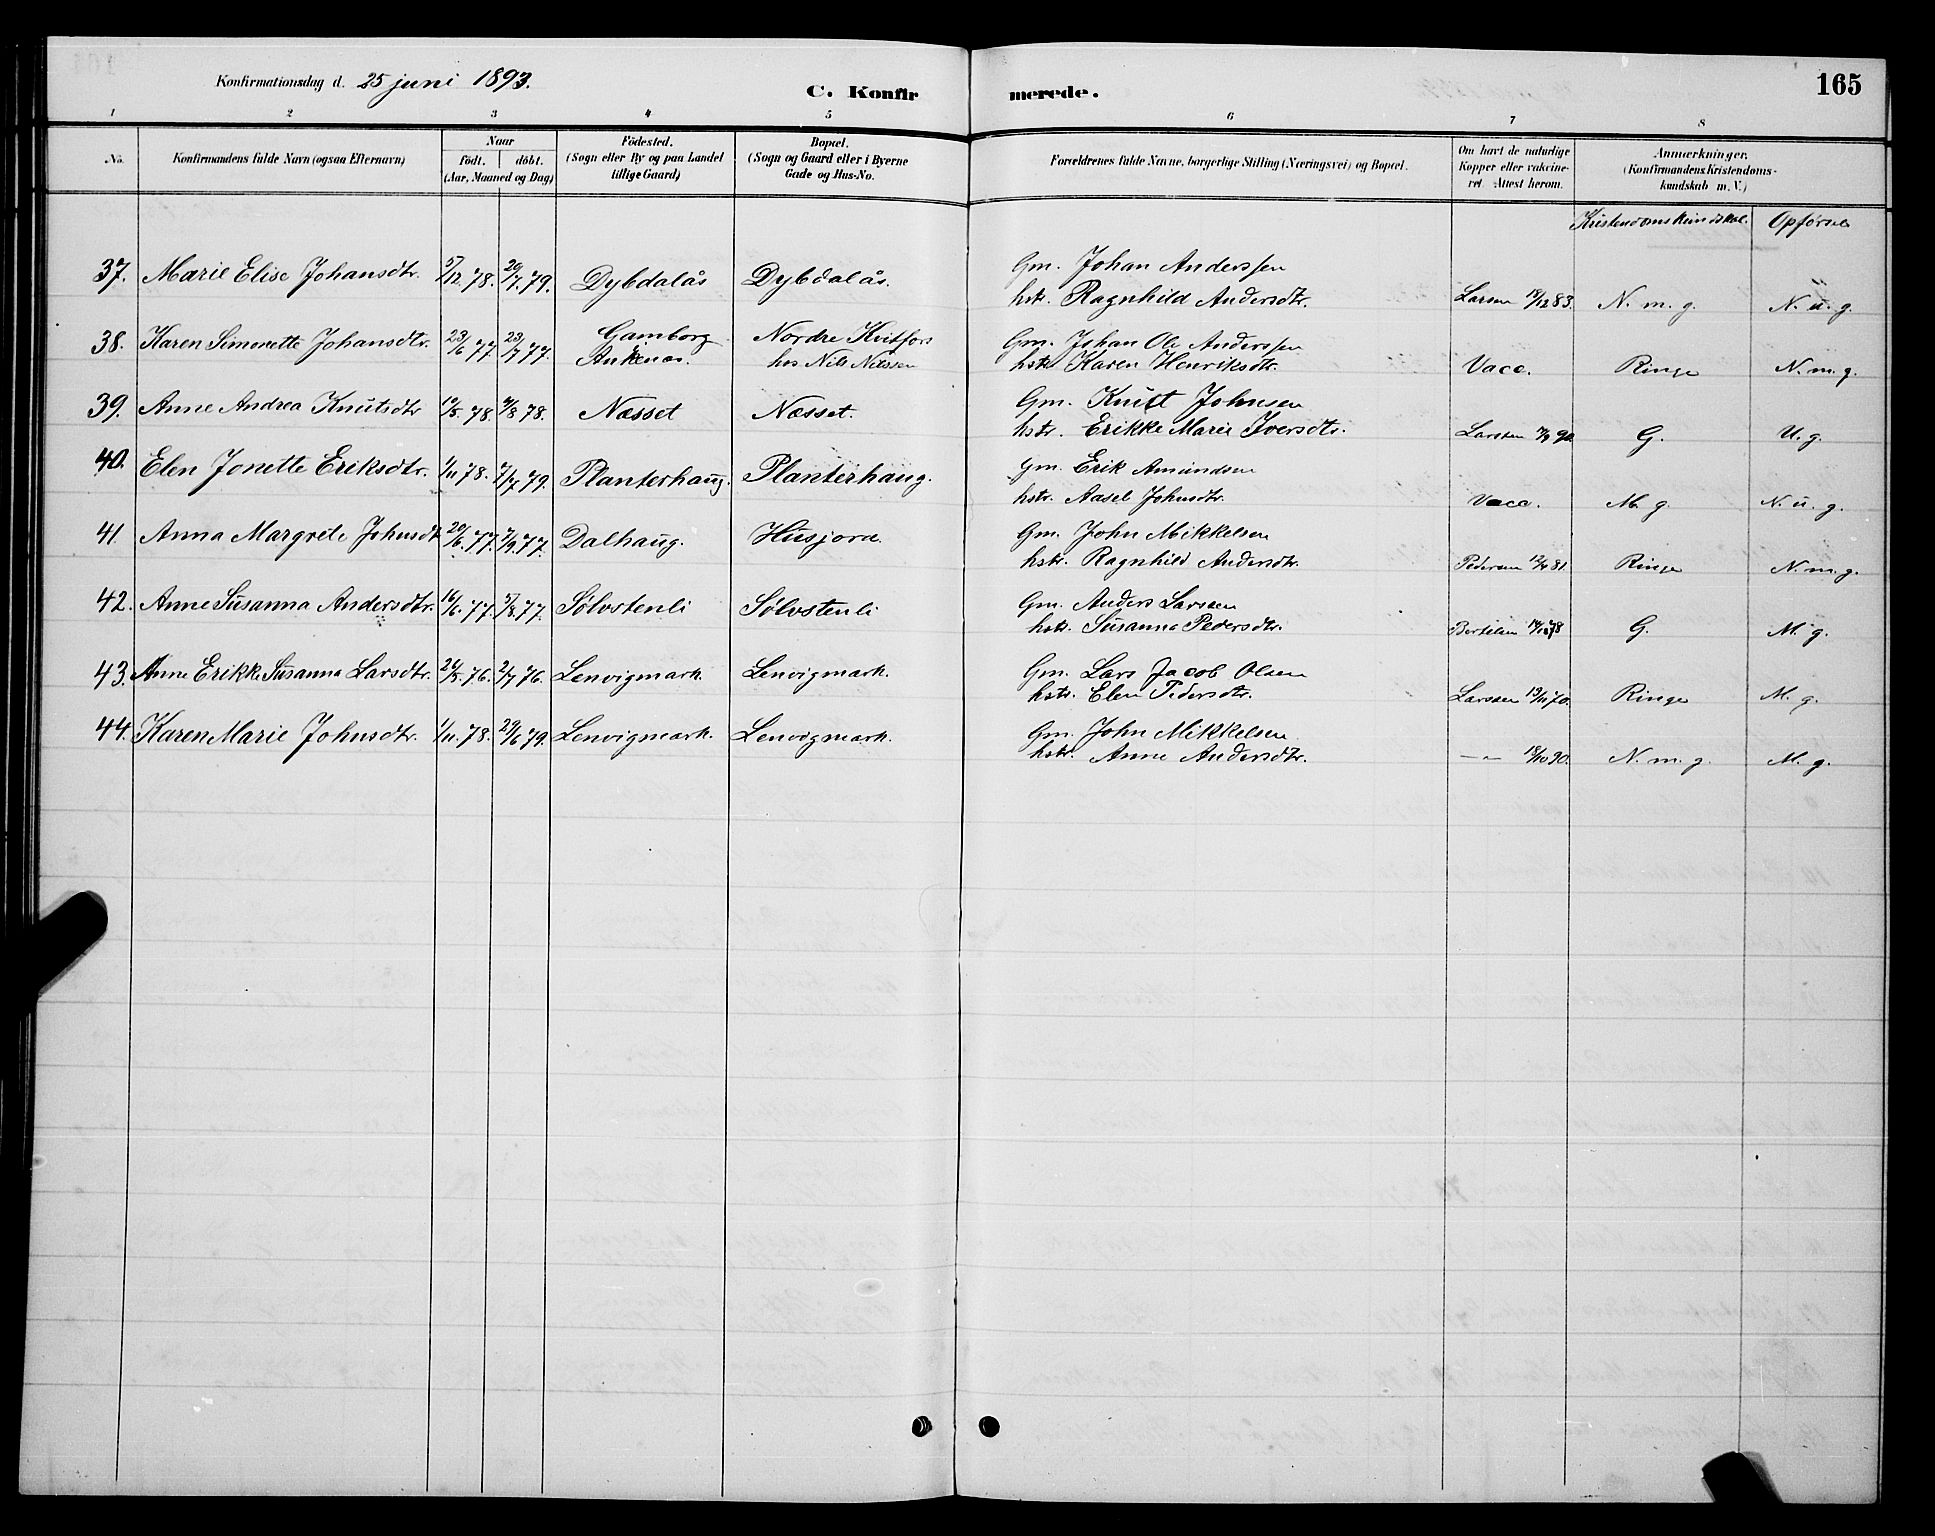 Konfirmationsdag d. 25 juni 1893.
C. Konfirmerede.
165
1 2 3 4 5 6 7 8
No.
Konfirmandens fulde Navn (ogsaa Efternavn)
Naar
födt. döbt.
(Aar, Maaned og Dag)
Födested.
(Sogn eller By og paa Landet
tillige Gaard)
Bopæl.
(Sogn og Gaard eller i Byerne
Gade og Hus-No.
Forældrenes fulde Navne, borgerlige Stilling (Næringsvei) og Bopæl.
Om havt de naturlige
Kopper eller vakcine-
ret. Attest herom.
Anmærkninger.
(Konfirmandens Kristendoms-
kundskab m. V.)
Kristendomskundskab. Opførsel
37. Marie Elise Johansdtr. 5/12 78. 20/7 79. Dybdalås Dybdalås. Gm. Johan Anderssen
hstr. Ragnhild Andersdtr. Larsen 18/12 83. N. m. g. N. u. g.
38. Karen Simonette Johansdtr. 23/6 77. 23/7 77. Gamborg Nordre Kvitfors Gm. Johan Ole Anderssen
Ankenæs. hos Nils Nilssen hstr. Karen Henriksdtr. Vacc. Ringe N. m. g.
39. Anne Andrea Knutsdtr 10/5 78. 4/8 78. Næsset Næsset. Gm. Knut Johnsen
hstr. Erikke Marie Iversdtr. Larssen 90. G. U. g.
40. Elen Jonette Eriksdtr. 1/11 78. 79. Planterhaug. Planterhaug. Gm. Erik Amundsen
hstr. Aasel Johnsdtr. Vacc. M. g. N. u. g.
41. Anna Margrete Johnsdt 20/6 77. 2/9 77. Dalhaug. Husjord. Gm. John Mikkelsen
hstr. Ragnhild Andersdtr. Pedersen 81. Ringe N. m. g.
42. Anne Susanna Andersdtr. 16/6 77. 5/8 77. Sølvstenli Sølvstenli Gm. Anders Larssen
hstr. Susanna Pedersdtr. Bertelsen 78 G. M. g.
43. Anne Erikke Susanna Larsdtr. 26/5 76. 2/7 76. Lenvigmark. Lenvigmark. Gm. Lars Jacob Olsen
hstr. Elen Pedersdtr. Larssen Ringe M. g.
44. Karen Marie Johnsdtr. 1/11 78. 29/6 79. Lenvigmark. Lenvigmark. Gm. John Mikkelsen
hstr. Anne Andersdtr. —"— 18/10 90. N. m. g. M. g.